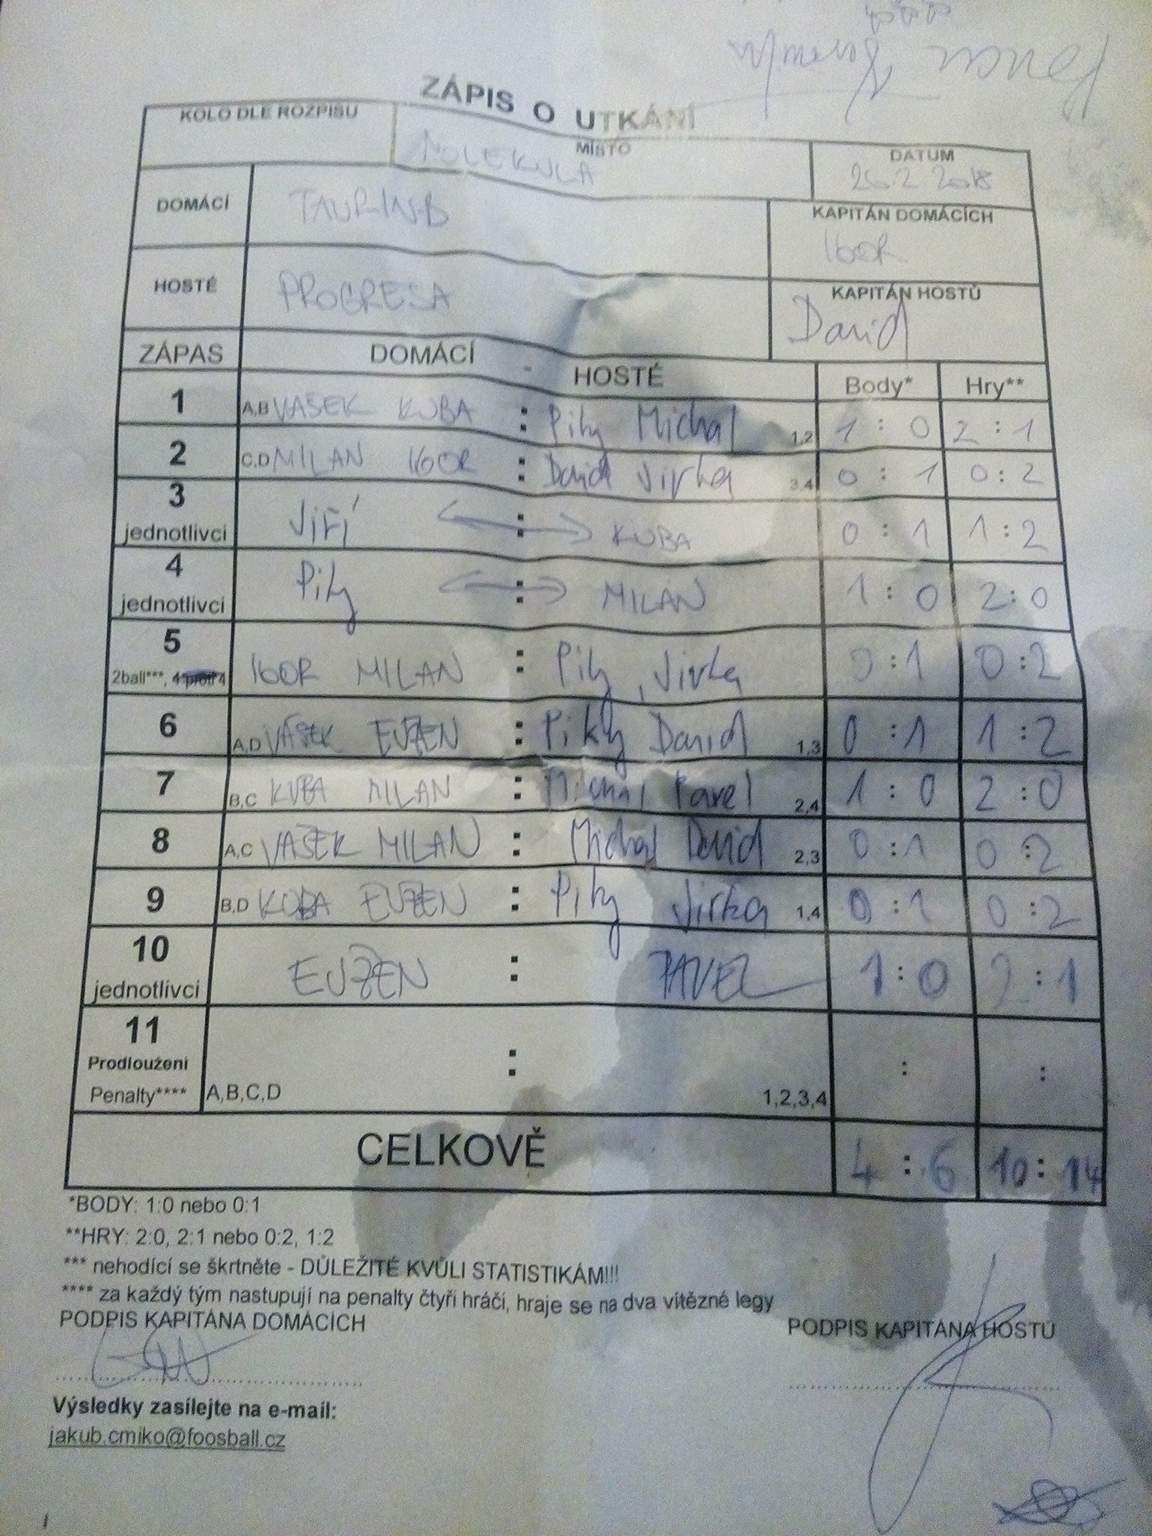 ZÁPIS O UTKÁNÍ
KOLO DLE ROZPISU
MÍSTO
MOLEKULA
DATUM
26.2 2018
DOMÁCÍ
TAURIN B
KAPITÁN DOMÁCÍCH
IGOR
HOSTÉ
PROGRESA
KAPITÁN HOSTŮ
David
ZÁPAS DOMÁCÍ - HOSTÉ Body* Hry**
1 A,B VAŠEK KUBA : Piky Michal 1,2 1 : 0 2 : 1
2 C,D MILAN IGOR : David Jirka 3,4 0 : 1 0 : 2
3 jednotlivci JIŘÍ : KUBA 0 : 1 1 : 2
4 jednotlivci Piky : MILAN 1 : 0 2 : 0
5 2ball***, 4 proti 4 IGOR MILAN : Piky, Jirka 0 : 1 0 : 2
6 A,D VAŠEK EVŽEN : Piky David 1,3 0 : 1 1 : 2
7 B,C KUBA MILAN : Michal Pavel 2,4 1 : 0 2 : 0
8 A,C VAŠEK MILAN : Michal David 2,3 0 : 1 0 : 2
9 B,D KUBA EVŽEN : Piky Jirka 1,4 0 : 1 0 : 2
10 jednotlivci EVŽEN : PAVEL 1 : 0 2 : 1
11
Prodloužení
Penalty**** A,B,C,D : 1,2,3,4 : :
CELKOVĚ 4 : 6 10 : 14
*BODY: 1:0 nebo 0:1
**HRY: 2:0, 2:1 nebo 0:2, 1:2
*** nehodící se škrtněte - DŮLEŽITÉ KVŮLI STATISTIKÁM!!!
**** za každý tým nastupují na penalty čtyři hráči, hraje se na dva vítězné legy
PODPIS KAPITÁNA DOMÁCÍCH
PODPIS KAPITÁNA HOSTŮ
Výsledky zasílejte na e-mail:
jakub.cmiko@foosball.cz